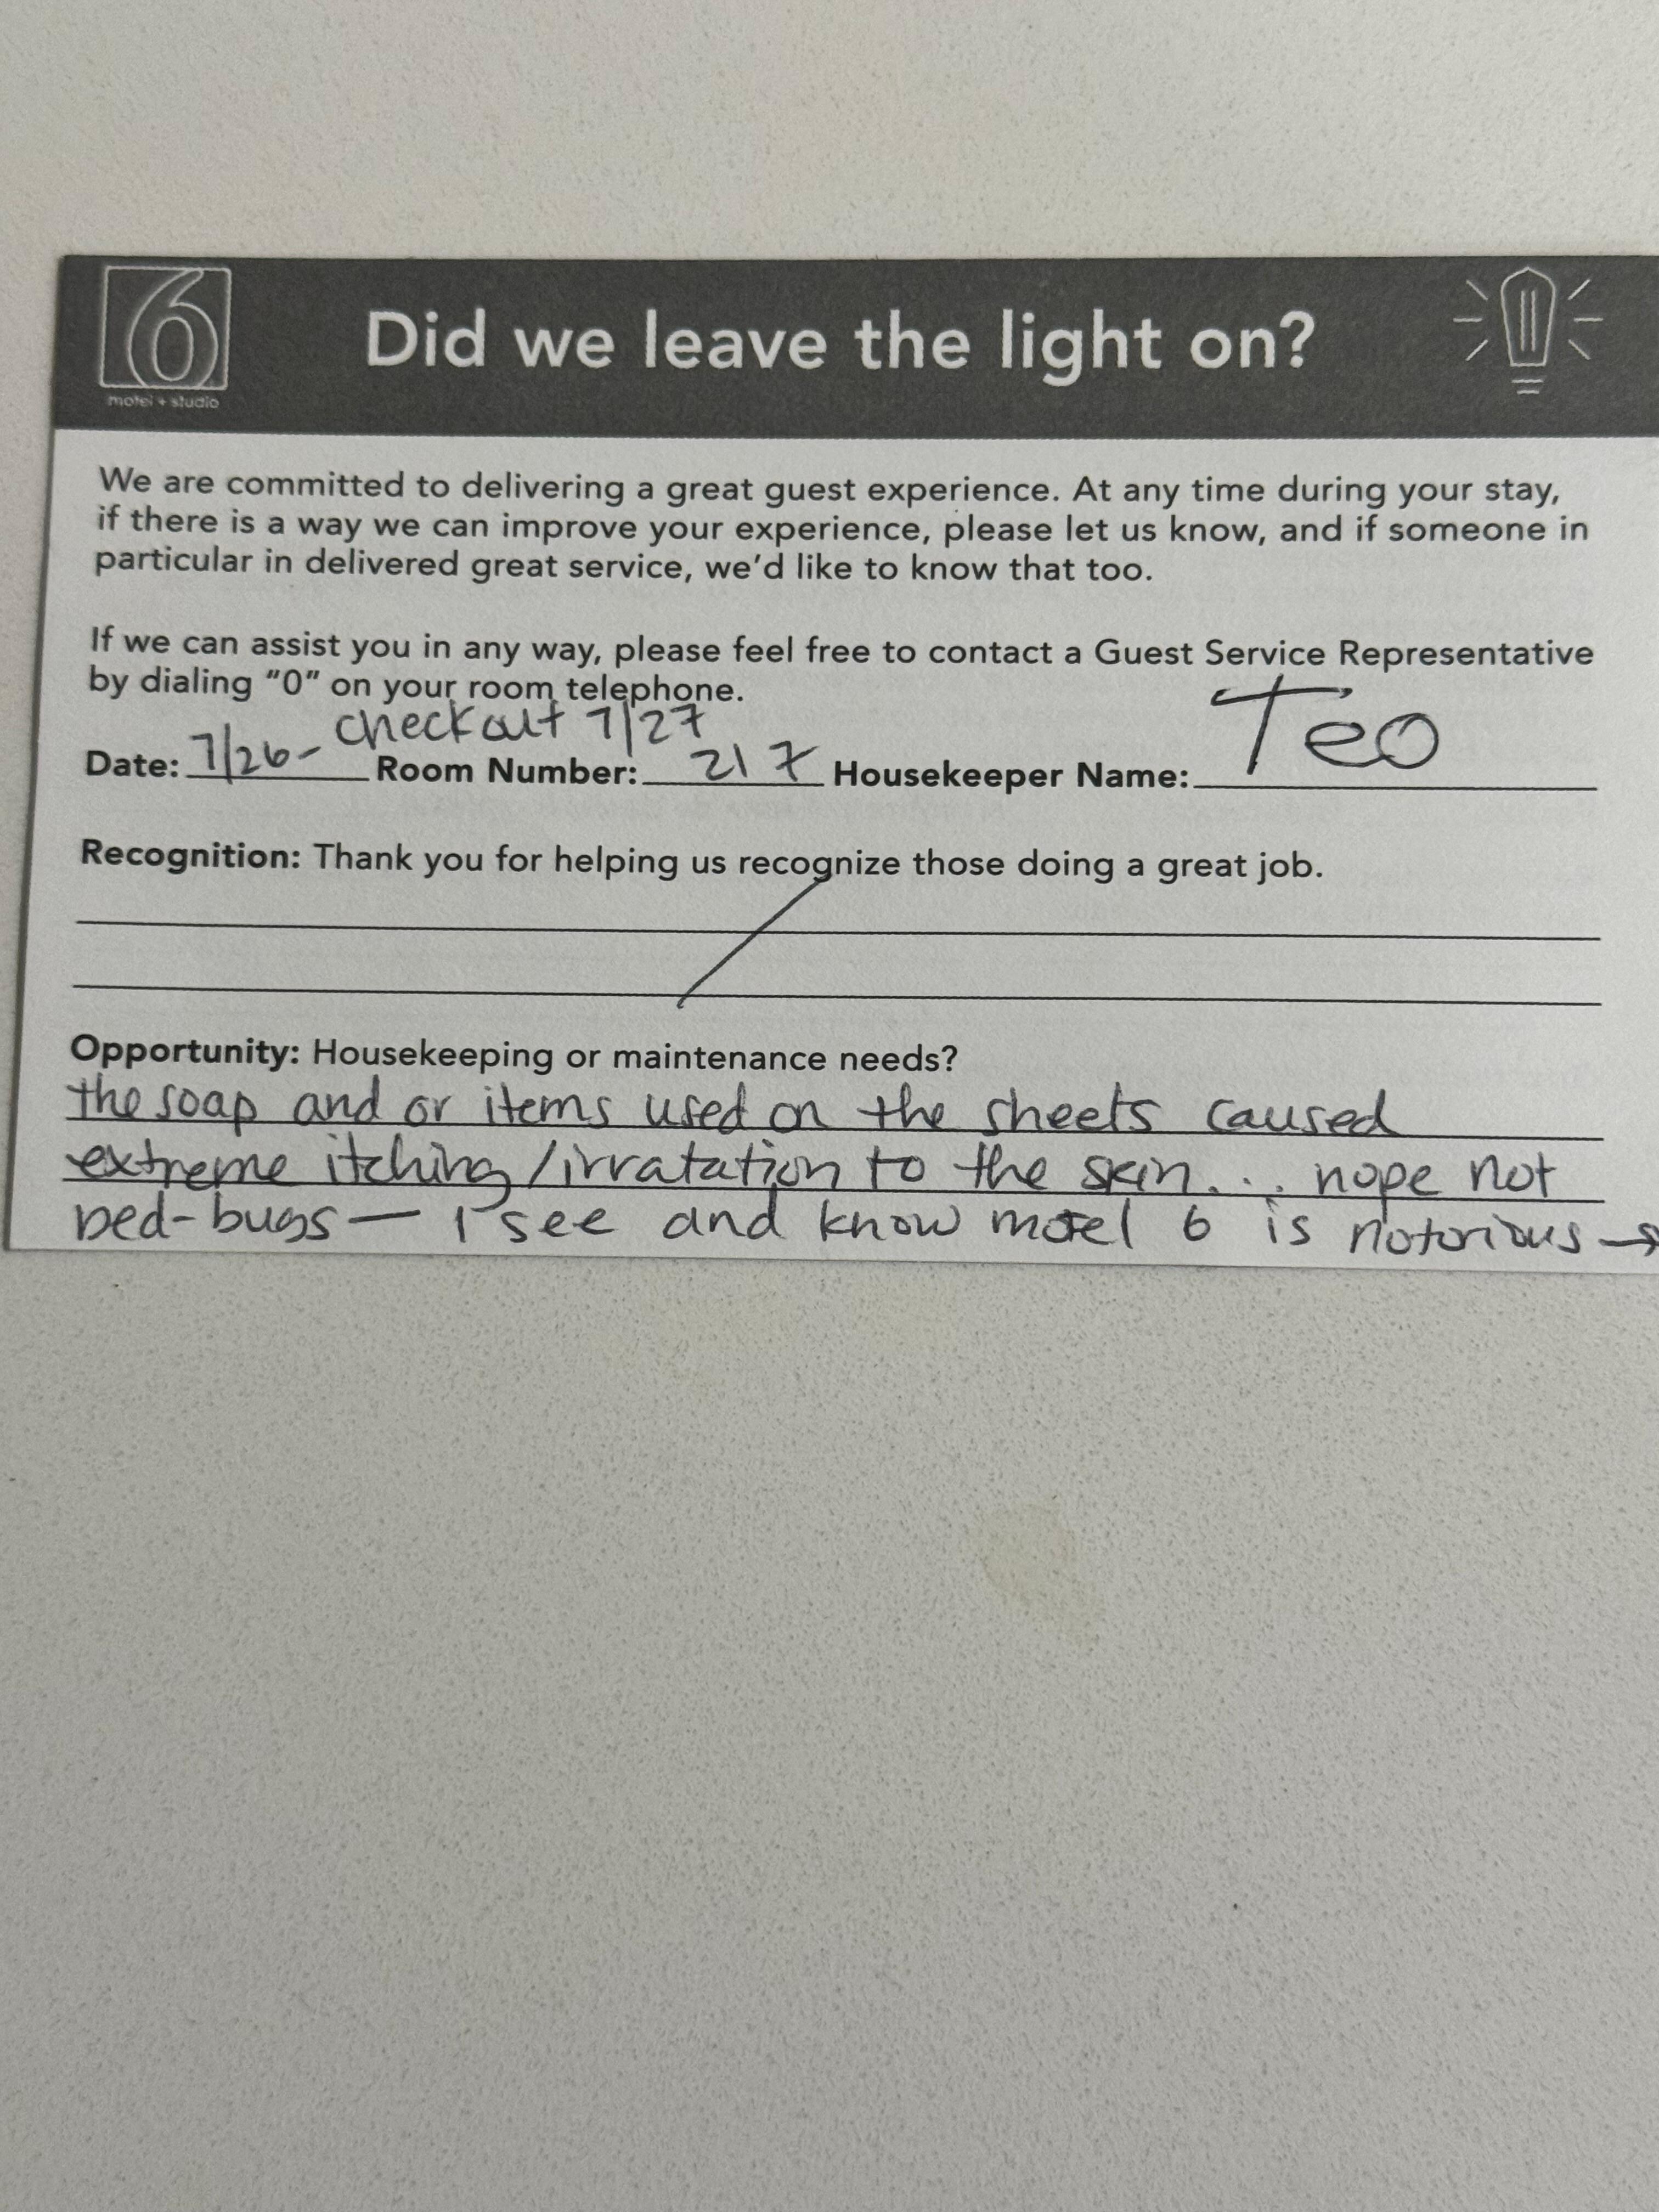 6
motel + studio
Did we leave the light on?
We are committed to delivering a great guest experience. At any time during your stay,
if there is a way we can improve your experience, please let us know, and if someone in
particular in delivered great service, we'd like to know that too.
If we can assist you in any way, please feel free to contact a Guest Service Representative
by dialing "0" on your room telephone.
Date: 7/26- checkout 7/27 Room Number: 217 Housekeeper Name: Teo
Recognition: Thank you for helping us recognize those doing a great job.
Opportunity: Housekeeping or maintenance needs?
the soap and or items used on the sheets caused
extreme itching/irratation to the skin... nope not
bed-bugs — I see and know motel 6 is notorious →